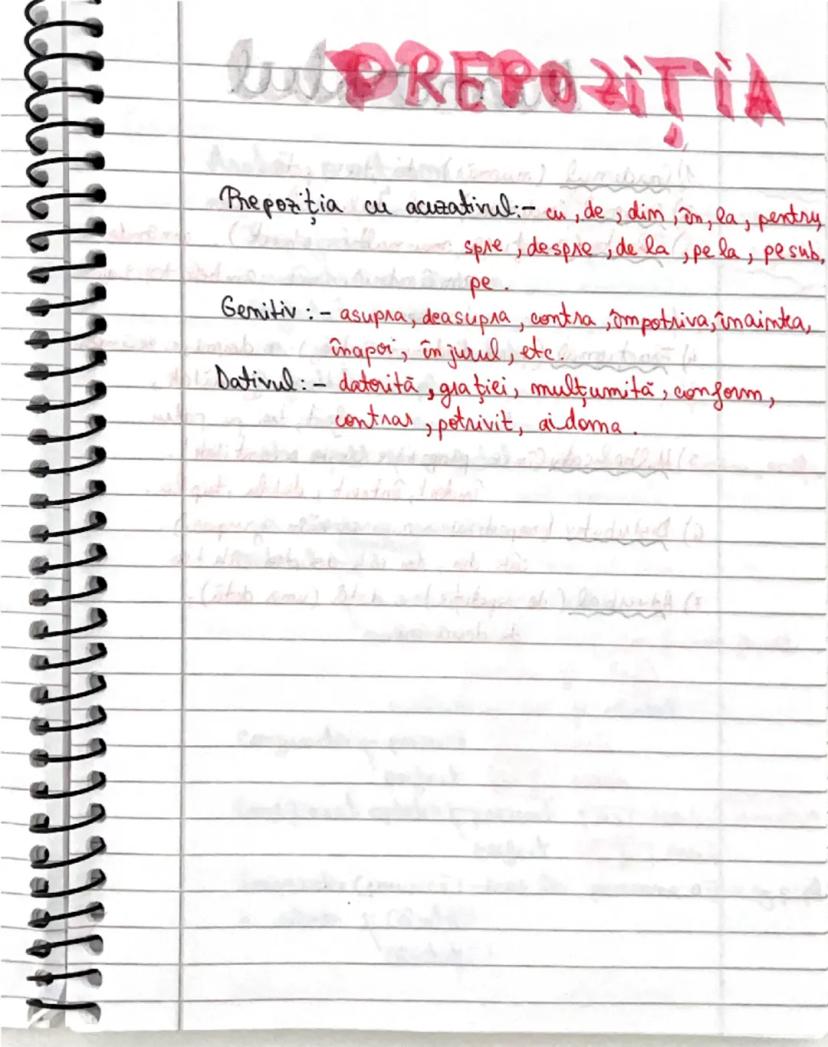 PREPOZIȚIA
Prepoziția cu acuzativul:- cu, de, din, în, la, pentru,
spre, despre, de la, pe la, pe sub,
pe.
Genitiv :- asupra, deasupra, contra, împotriva, înaintea,
înapoi, în jurul, etc.
Dativul: - datorită, grației, mulțumită, conform,
contrar, potrivit, aidoma.